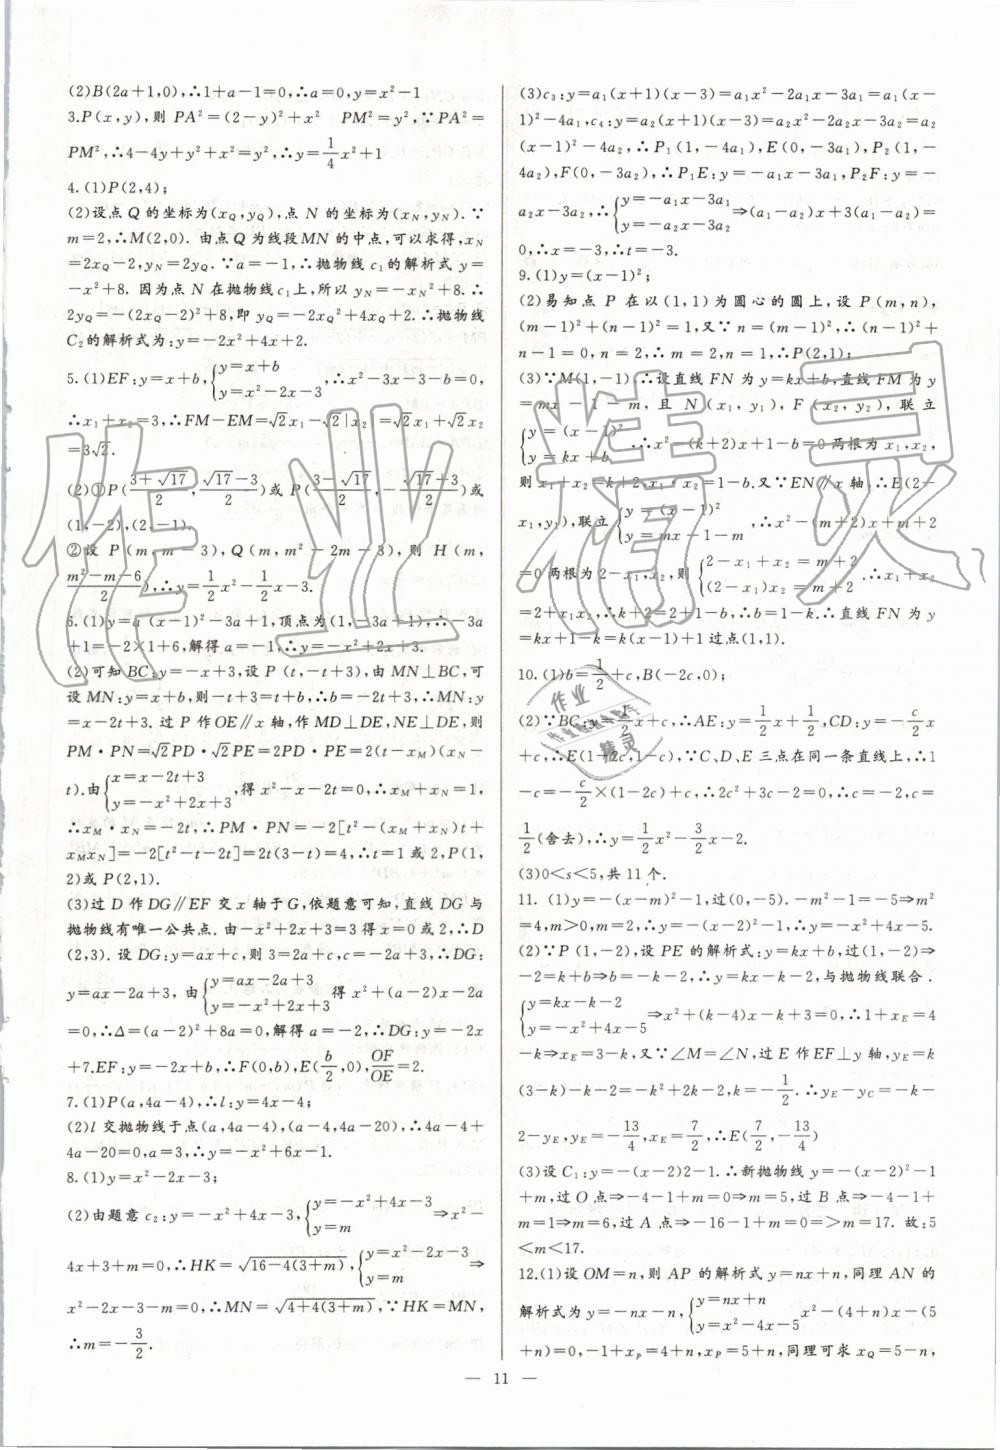 (2)B(2a+1,0),∴1+a−1=0,∴a=0,y=x²−1
3.P(x,y),则 PA²=(2−y)²+x² PM²=y²,∵PA²=
PM²,∴4−4y+y²+x²=y²,∴y=1/4x²+1
4.(1)P(2,4);
(2)设点 Q 的坐标为(x_Q,y_Q),点 N 的坐标为(x_N,y_N).∵
m=2,∴M(2,0). 由点 Q 为线段MN 的中点,可以求得,x_N
=2x_Q−2,y_N=2y_Q.∵a=−1,∴抛物线 c₁的解析式 y=
−x²+8. 因为点 N 在抛物线c₁上,所以 y_N=−x_N²+8.∴
2y_Q=−(2x_Q−2)²+8,即 y_Q=−2x_Q²+4x_Q+2.∴抛物线
C₂的解析式为:y=−2x²+4x+2.
5.(1)EF:y=x+b,{y=x+b y=x²−2x−3,∴x²−3x−3−b=0,
∴x₁+x₂=3,∴FM−EM=√2x₁−√2|x₂|=√2x₁+√2x₂
=3√2.
(2)①P((3+√17)/2,(√17−3)/2)或 P((3−√17)/2,−(√17+3)/2)或
(1,−2),(2,−1).
②设 P(m,m−3),Q(m,m²−2m−3),则 H(m,
(m²−m−6)/2),∴y=1/2x²−1/2x−3.
6.(1)y=a(x−1)²−3a+1,顶点为(1,−3a+1),∴−3a
+1=−2×1+6,解得a=−1,∴y=−x²+2x+3.
(2)可知BC:y=−x+3,设 P(t,−t+3),由 MN⊥BC,可
设MN:y=x+b,则−t+3=t+b,∴b=−2t+3,∴MN:y
=x−2t+3. 过 P 作OE∥x 轴,作MD⊥DE,NE⊥DE,则
PM·PN=√2PD·√2PE=2PD·PE=2(t−x_M)(x_N−
t).由{x=x−2t+3 y=−x²+2x+3,得x²−x−2t=0,∴x_M+x_N=1,
∴x_M·x_N=−2t,∴PM·PN=−2[t²−(x_M+x_N)t+
x_Mx_N]=−2[t²−t−2t]=2t(3−t)=4,∴t=1或2,P(1,
2)或 P(2,1).
(3)过 D 作 DG∥EF 交 x 轴于 G,依题意可知,直线 DG 与
抛物线有唯一公共点. 由−x²+2x+3=3得x=0或2,∴D
(2,3). 设 DG:y=ax+c,则 3=2a+c,c=−2a+3,∴DG:
y=ax−2a+3, 由{y=ax−2a+3 y=−x²+2x+3 得 x²+(a−2)x−2a
=0,∴Δ=(a−2)²+8a=0,解得 a=−2,∴DG:y=−2x
+7,EF:y=−2x+b,∴F(0,b),E(b/2,0),OF/OE=2.
7.(1)P(a,4a−4),∴l:y=4x−4;
(2)l 交抛物线于点(a,4a−4),(a−4,4a−20),∴4a−4+
4a−20=0,a=3,∴y=−x²+6x−1.
8.(1)y=x²−2x−3;
(2)由题意 c₂:y=−x²+4x−3,{y=−x²+4x−3 y=m⇒x²−
4x+3+m=0,∴HK=√(16−4(3+m)),{y=x²−2x−3 y=m⇒
x²−2x−3−m=0,∴MN=√(4+4(3+m)),∵HK=MN,
∴m=−3/2.
(3)c₃:y=a₁(x+1)(x−3)=a₁x²−2a₁x−3a₁=a₁(x−
1)²−4a₁,c₄:y=a₂(x+1)(x−3)=a₂x²−2a₂x−3a₂=a₂
(x−1)²−4a₂,∴P₁(1,−4a₁),E(0,−3a₁),P₂(1,−
4a₂),F(0,−3a₂),∴P₁E:y=−a₁x−3a₁,P₂F:y=−
a₂x−3a₂,∴{y=−a₁x−3a₁ y=−a₂x−3a₂⇒(a₁−a₂)x+3(a₁−a₂)=
0,∴x=−3,∴t=−3.
9.(1)y=(x−1)²;
(2)易知点 P 在以(1,1)为圆心的圆上,设 P(m,n),
(m−1)²+(n−1)²=1,又∵n=(m−1)²,∴(n−1)²+
n−1=0,n=1,∴m=2,n=1,∴P(2,1);
(3)∵M(1,−1)∴设直线 FN 为 y=kx+b,直线 FM 为 y
=mx−1−m,且 N(x₁,y₁),F(x₂,y₂),联立
{y=(x−1)² y=kx+b,∴x²−(k+2)x+1−b=0两根为x₁,x₂,
则x₁+x₂=k+2,x₁·x₂=1−b.又∵EN∥x 轴,∴E(2−
x₁,y₁),联立{y=(x−1)² y=mx−1−m,∴x²−(m+2)x+m+2
=0两根为2−x₁,x₂,则{2−x₁+x₂=m+2 (2−x₁)x₂=m+2.∴x₁+x₂
=2+x₁x₂,∴k+2=2+1−b,∴b=1−k.∴直线 FN 为 y
=kx+1−k=k(x−1)+1过点(1,1).
10.(1)b=1/2+c,B(−2c,0);
(2)∵BC:y=1/2x+c,∴AE:y=1/2x+1/2,CD:y=−c/2x
+c,∴E(1−2c,1−c),∵C、D、E 三点在同一条直线上,∴1
−c=−c/2×(1−2c)+c,∴2c²+3c−2=0,∴c=−2,c=
1/2(舍去),∴y=1/2x²−3/2x−2.
(3)0<s<5,共 11 个.
11. (1)y=−(x−m)²−1,过(0,−5).−m²−1=−5⇒m²
=4,m>0,m=2,∴y=−(x−2)²−1,∴y=−x²+4x−5.
(2)∵P(1,−2),设 PE 的解析式:y=kx+b,过(1,−2)⇒
−2=k+b⇒b=−k−2,∴y=kx−k−2,与抛物线联合.
{y=kx−k−2 y=−x²+4x−5⇒x²+(k−4)x−k+3=0,∴1+x_E=4
−k⇒x_E=3−k,又∵∠M=∠N,过 E 作EF⊥y 轴,y_E=k
(3−k)−k−2=−k²+2k−2,k=−1/2.∴y_E−y_C=−k−
2−y_E,y_E=−13/4,x_E=7/2,∴E(7/2,−13/4)
(3)设 C₁:y=−(x−2)2−1.∴新抛物线 y=−(x−2)²−1
+m,过 O 点⇒−4−1+m=0⇒m=5,过 B 点⇒−4−1+
m=1⇒m=6,过 A 点⇒−16−1+m=0⇒m=17. 故:5
<m<17.
12.(1)设 OM=n,则 AP 的解析式 y=nx+n,同理 AN 的
解析式为 y=−nx−n,{y=nx+n y=x²−4x−5 x²−(4+n)x−(5
+n)=0,−1+x_P=4+n,x_P=5+n,同理可求 x_Q=5−n,
— 11 —
作业精灵
作业
精灵